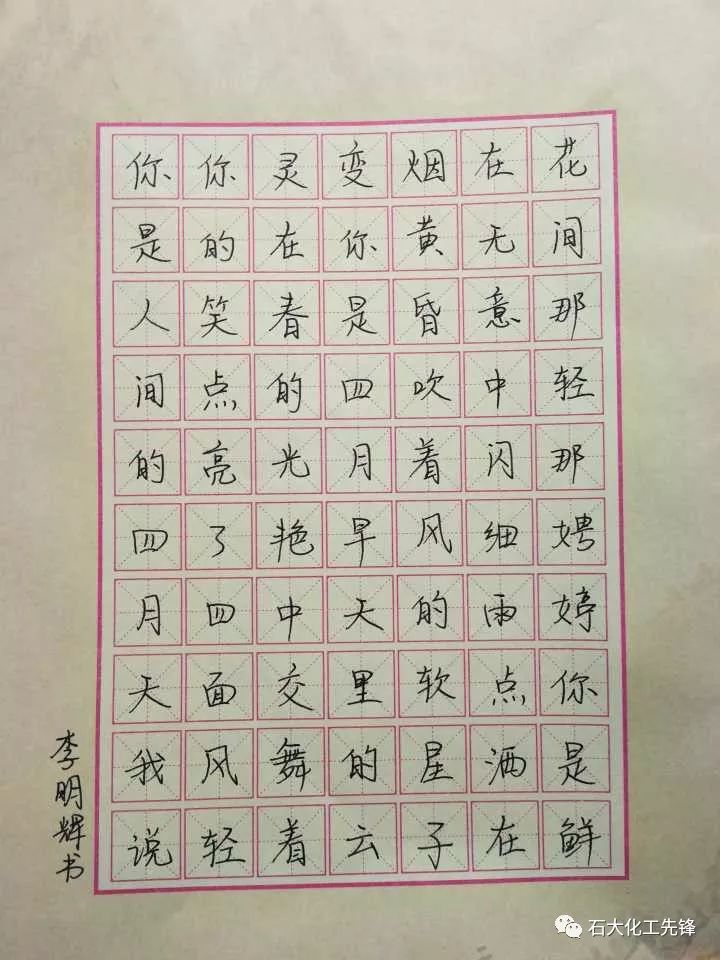 你是人间的四月天我说
你的笑点亮了四面风轻
灵在春的光艳中交舞着
变你是四月早天里的云
烟黄昏吹着风的软星子
在无意中闪细雨点洒在
花间那轻那娉婷你是鲜
李明辉书
石大化工先锋